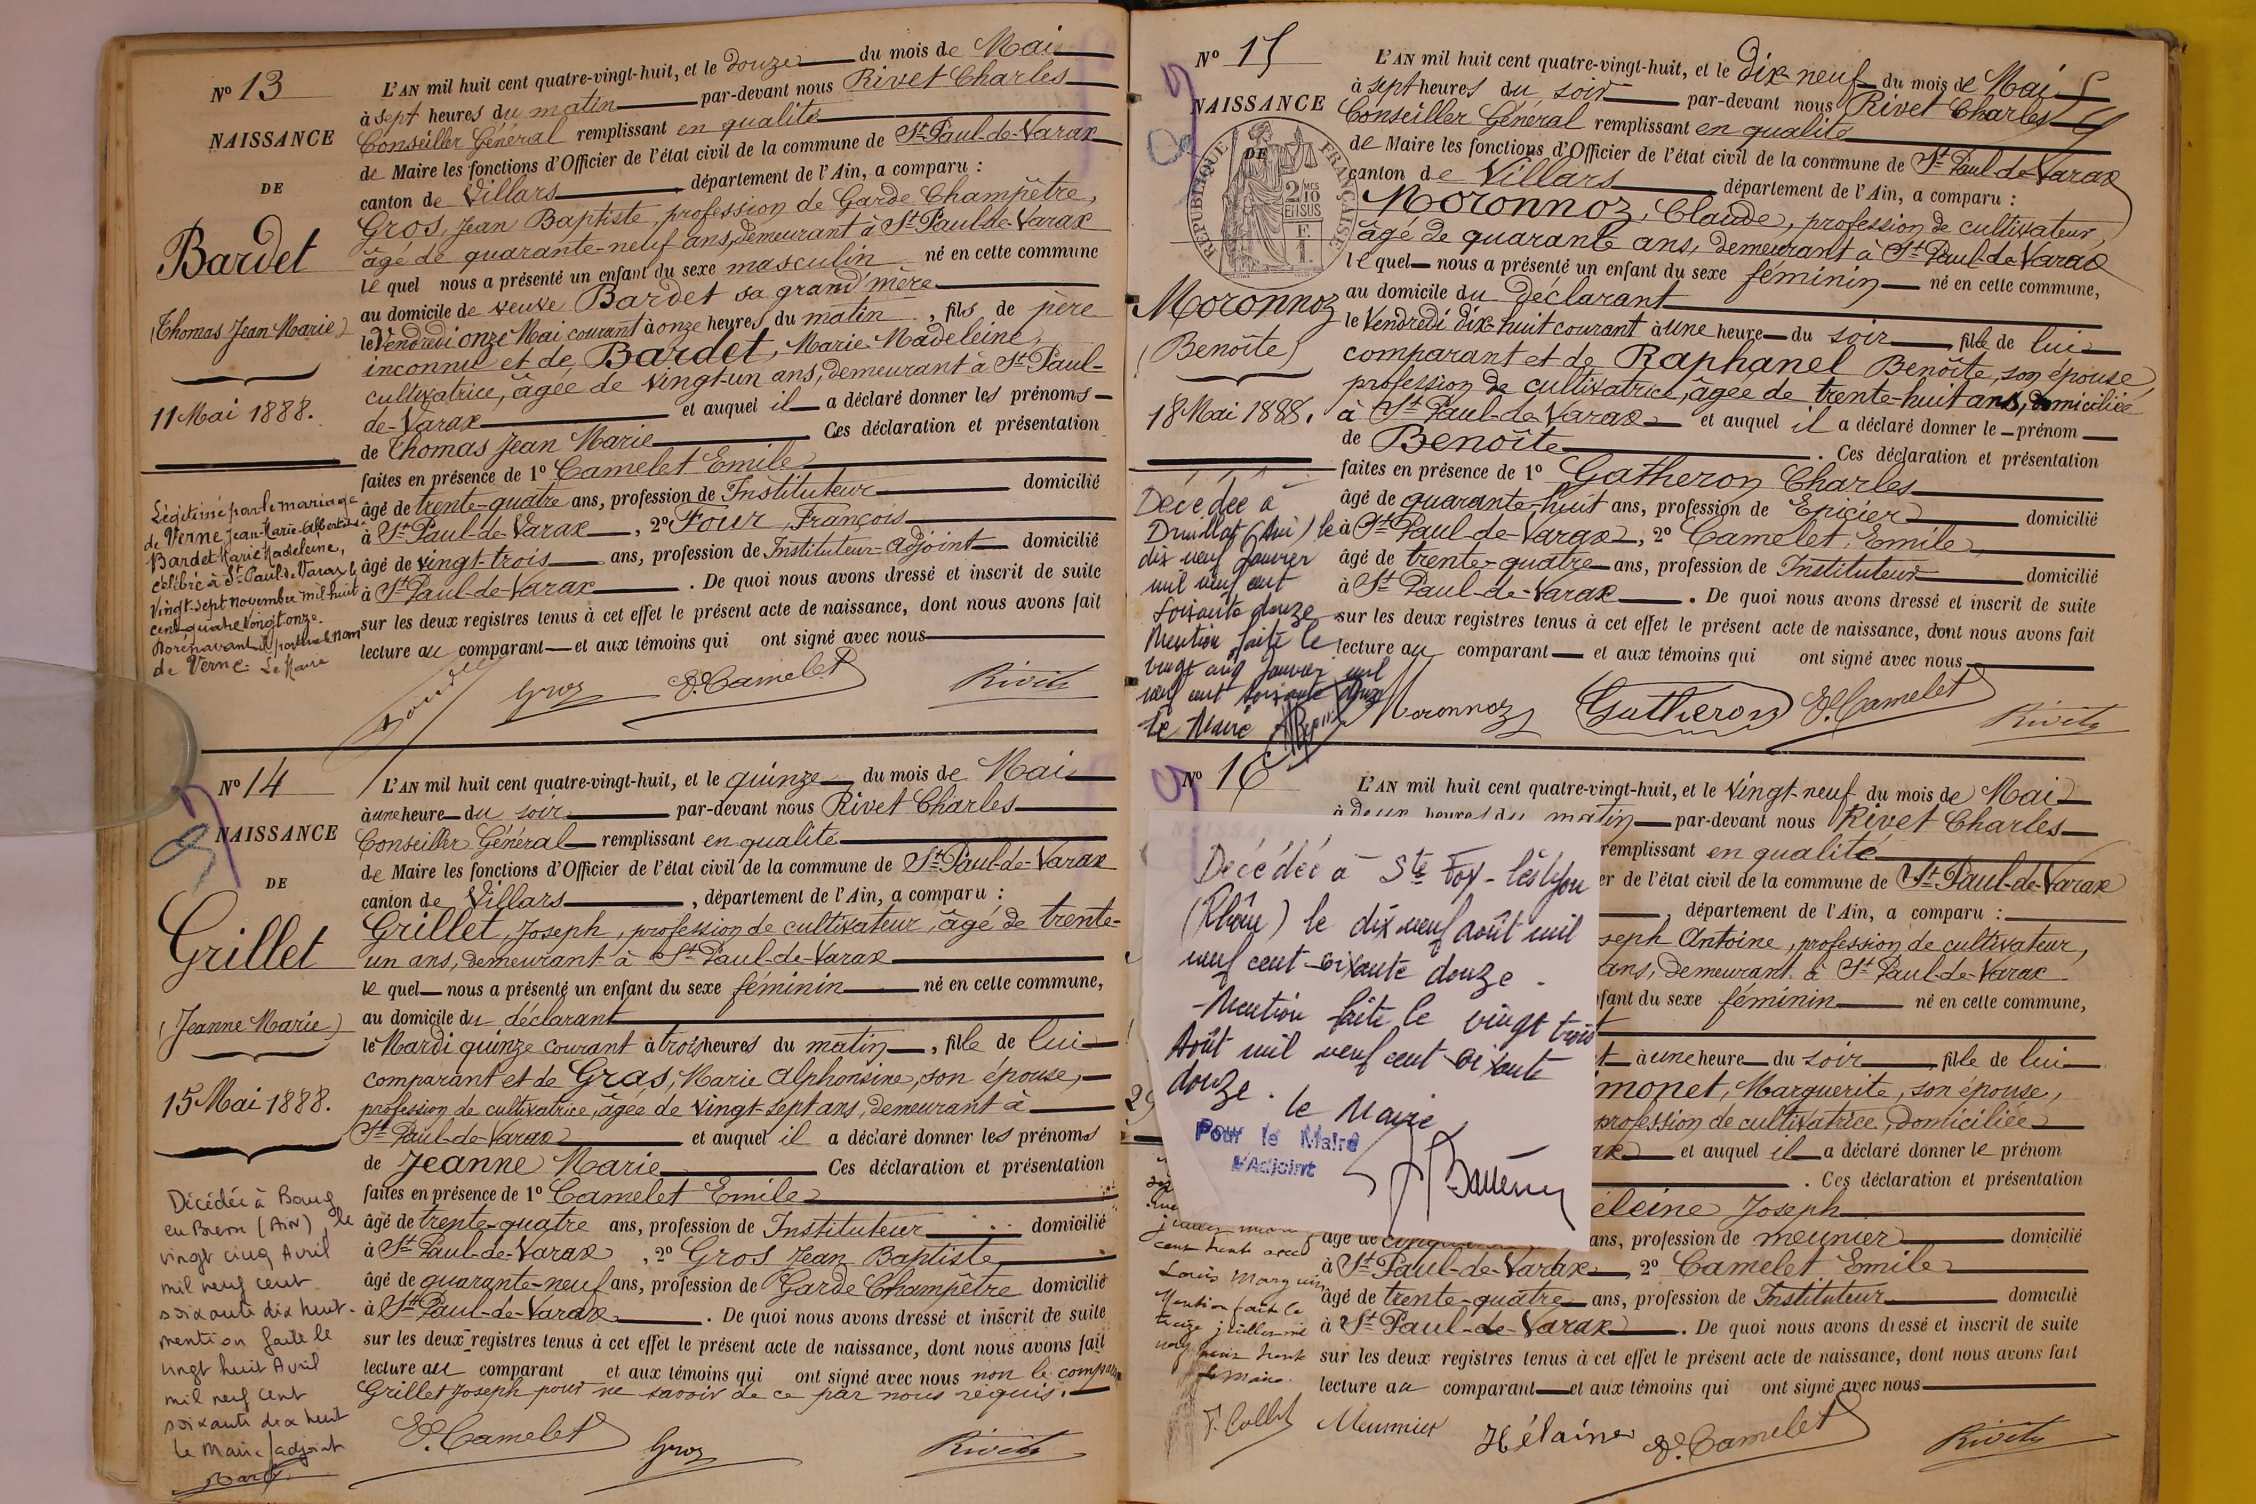 N° 13
NAISSANCE
DE
Bardet
(Thomas Jean Marie)
11 Mai 1888.
Légitimé par le mariage
de Verne Jean-Marie-Albert &
Bardet Marie Madeleine,
célébré à St-Paul-de-Varax le
vingt-sept novembre mil huit
cent quatre vingt-onze.
Dorénavant il portera le nom
de Verne. Le Maire
L'AN mil huit cent quatre-vingt-huit, et le douze du mois de Mai
à sept heures du matin par-devant nous Rivet Charles
Conseiller Général remplissant en qualité
de Maire les fonctions d'Officier de l'état civil de la commune de St-Paul-de-Varax
canton de Villars département de l'Ain, a comparu :
Gros, Jean Baptiste, profession de Garde Champêtre,
âgé de quarante-neuf ans, demeurant à St-Paul-de-Varax
le quel nous a présenté un enfant du sexe masculin né en cette commune
au domicile de veuve Bardet sa grand'mère
le Vendredi onze Mai courant à onze heures du matin, fils de père
inconnu et de Bardet, Marie Madeleine,
cultivatrice, âgée de vingt-un ans, demeurant à St-Paul-
de-Varax et auquel il a déclaré donner les prénoms
de Thomas Jean Marie Ces déclaration et présentation
faites en présence de 1° Camelet Emile
âgé de trente-quatre ans, profession de Instituteur domicilié
à St-Paul-de-Varax, 2° Four, François
âgé de vingt-trois ans, profession de Instituteur-adjoint domicilié
à St-Paul-de-Varax. De quoi nous avons dressé et inscrit de suite
sur les deux registres tenus à cet effet le présent acte de naissance, dont nous avons fait
lecture au comparant et aux témoins qui ont signé avec nous
Gros E. Camelet Rivet
N° 14
NAISSANCE
DE
Grillet
(Jeanne Marie)
15 Mai 1888.
Décédée à Bourg
en Bresse (Ain), le
vingt cinq Avril
mil neuf cent
soixante dix huit.
mention faite le
vingt huit Avril
mil neuf cent
soixante dix huit
le Maire/adjoint
L'AN mil huit cent quatre-vingt-huit, et le quinze du mois de Mai
à une heure du soir par-devant nous Rivet Charles
Conseiller Général remplissant en qualité
de Maire les fonctions d'Officier de l'état civil de la commune de St-Paul-de-Varax
canton de Villars, département de l'Ain, a comparu :
Grillet, Joseph, profession de cultivateur, âgé de trente-
un ans, demeurant à St-Paul-de-Varax
le quel nous a présenté un enfant du sexe féminin né en cette commune,
au domicile du déclarant
le Mardi quinze courant à trois heures du matin, fille de lui
comparant et de Gras, Marie Alphonsine, son épouse,
profession de cultivatrice, âgée de vingt-sept ans, demeurant à
St-Paul-de-Varax et auquel il a déclaré donner les prénoms
de Jeanne Marie Ces déclaration et présentation
faites en présence de 1° Camelet Emile
âgé de trente-quatre ans, profession de Instituteur domicilié
à St-Paul-de-Varax, 2° Gros Jean Baptiste
âgé de quarante-neuf ans, profession de Garde Champêtre domicilié
à St-Paul-de-Varax. De quoi nous avons dressé et inscrit de suite
sur les deux registres tenus à cet effet le présent acte de naissance, dont nous avons fait
lecture au comparant et aux témoins qui ont signé avec nous non le comparant
Grillet Joseph pour ne savoir de ce par nous requis.
E. Camelet Gros Rivet
N° 15
NAISSANCE
DE
RÉPUBLIQUE FRANÇAISE
2/10 EN SUS
Moronnoz
(Benoîte)
18 Mai 1888.
Décédée à
Druillat (Ain) le
dix neuf Janvier
mil neuf cent
soixante douze
Mention faite le
vingt cinq Janvier mil
neuf cent soixante douze
Le Maire
L'AN mil huit cent quatre-vingt-huit, et le dix-neuf du mois de Mai
à sept heures du soir par-devant nous Rivet Charles
Conseiller Général remplissant en qualité
de Maire les fonctions d'Officier de l'état civil de la commune de St-Paul-de-Varax
canton de Villars département de l'Ain, a comparu :
Moronnoz, Claude, profession de cultivateur,
âgé de quarante ans, demeurant à St-Paul-de-Varax
le quel nous a présenté un enfant du sexe féminin né en cette commune,
au domicile du déclarant
le Vendredi dix-huit courant à une heure du soir, fille de lui
comparant et de Raphanel Benoîte, son épouse,
profession de cultivatrice, âgée de trente-huit ans, domiciliée
à St-Paul-de-Varax et auquel il a déclaré donner le prénom
de Benoîte. Ces déclaration et présentation
faites en présence de 1° Gatheron Charles
âgé de quarante-huit ans, profession de Epicier domicilié
à St-Paul-de-Varax, 2° Camelet, Emile,
âgé de trente-quatre ans, profession de Instituteur domicilié
à St-Paul-de-Varax. De quoi nous avons dressé et inscrit de suite
sur les deux registres tenus à cet effet le présent acte de naissance, dont nous avons fait
lecture au comparant et aux témoins qui ont signé avec nous
Moronnoz Gatheron E. Camelet Rivet
N° 16
L'AN mil huit cent quatre-vingt-huit, et le vingt-neuf du mois de Mai
à deux heures du matin par-devant nous Rivet Charles
remplissant en qualité
er de l'état civil de la commune de St-Paul-de-Varax
, département de l'Ain, a comparu :
seph Antoine, profession de cultivateur,
ans, demeurant à St-Paul-de-Varax
fant du sexe féminin né en cette commune,
t à une heure du soir, fille de lui
monet, Marguerite, son épouse,
profession de cultivatrice, domiciliée
ax et auquel il a déclaré donner le prénom
. Ces déclaration et présentation
éleine Joseph
ans, profession de meunier domicilié
à St-Paul-de-Varax, 2° Camelet Emile
âgé de trente-quatre ans, profession de Instituteur domicilié
à St-Paul-de-Varax. De quoi nous avons dressé et inscrit de suite
sur les deux registres tenus à cet effet le présent acte de naissance, dont nous avons fait
lecture au comparant et aux témoins qui ont signé avec nous
Meunier Hélaine E. Camelet Rivet
Décédée à Ste Foy-lès-Lyon
(Rhône) le dix neuf août mil
neuf cent soixante douze.
-Mention faite le vingt trois
Août mil neuf cent soixante
douze. le Maire
Pour le Maire
L'Adjoint
cent trente avec
Louis Marguin
Mention faite le
treize juillet mil
neuf cent trente
le Maire.